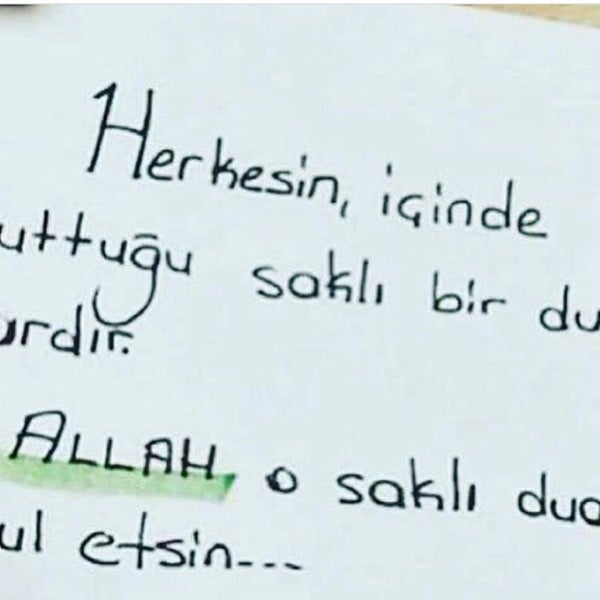 Herkesin, içinde
uttuğu saklı bir du
urdır.
ALLAH, o saklı dua
ul etsin---